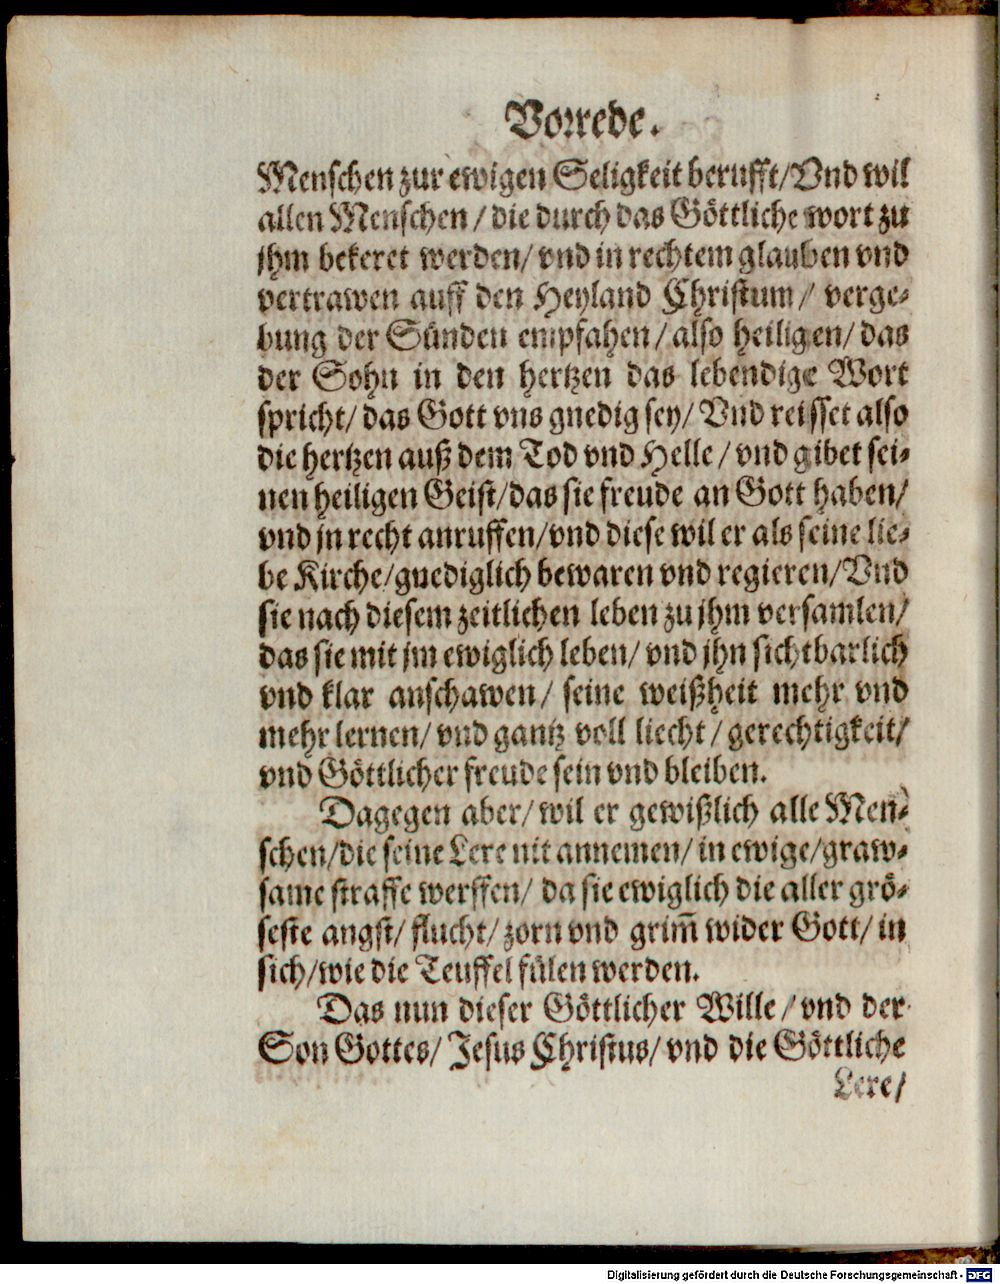 Vorrede.
Menschen zur ewigen Seligkeit berufft/Vnd wil
allen Menschen/ die durch das Göttliche wort zu
jhm bekeret werden/ vnd in rechtem glauben vnd
vertrawen auff den Heyland Christum/ verge-
bung der Sünden empfahen/ also heiligen/ das
der Sohn in den hertzen das lebendige Wort
spricht/ das Gott vns gnedig sey/ Vnd reisset also
die hertzen auß dem Tod vnd Helle/ vnd gibet sei-
nen heiligen Geist/das sie freude an Gott haben/
vnd jn recht anruffen/vnd diese wil er als seine lie-
be Kirche/gnediglich bewaren vnd regieren/Vnd
sie nach diesem zeitlichen leben zu jhm versamlen/
das sie mit jm ewiglich leben/ vnd jhn sichtbarlich
vnd klar anschawen/ seine weißheit mehr vnd
mehr lernen/ vnd gantz voll liecht/ gerechtigkeit/
vnd Göttlicher freude sein vnd bleiben.
Dagegen aber/ wil er gewißlich alle Men-
schen/die seine Lere nit annemen/ in ewige/graw-
same straffe werffen/ da sie ewiglich die aller grö-
seste angst/ flucht/ zorn vnd grim̃ wider Gott/ in
sich/wie die Teuffel fülen werden.
Das nun dieser Göttlicher Wille/ vnd der
Son Gottes/ Jesus Christus/ vnd die Göttliche
Lere/
Digitalisierung gefördert durch die Deutsche Forschungsgemeinschaft - DFG